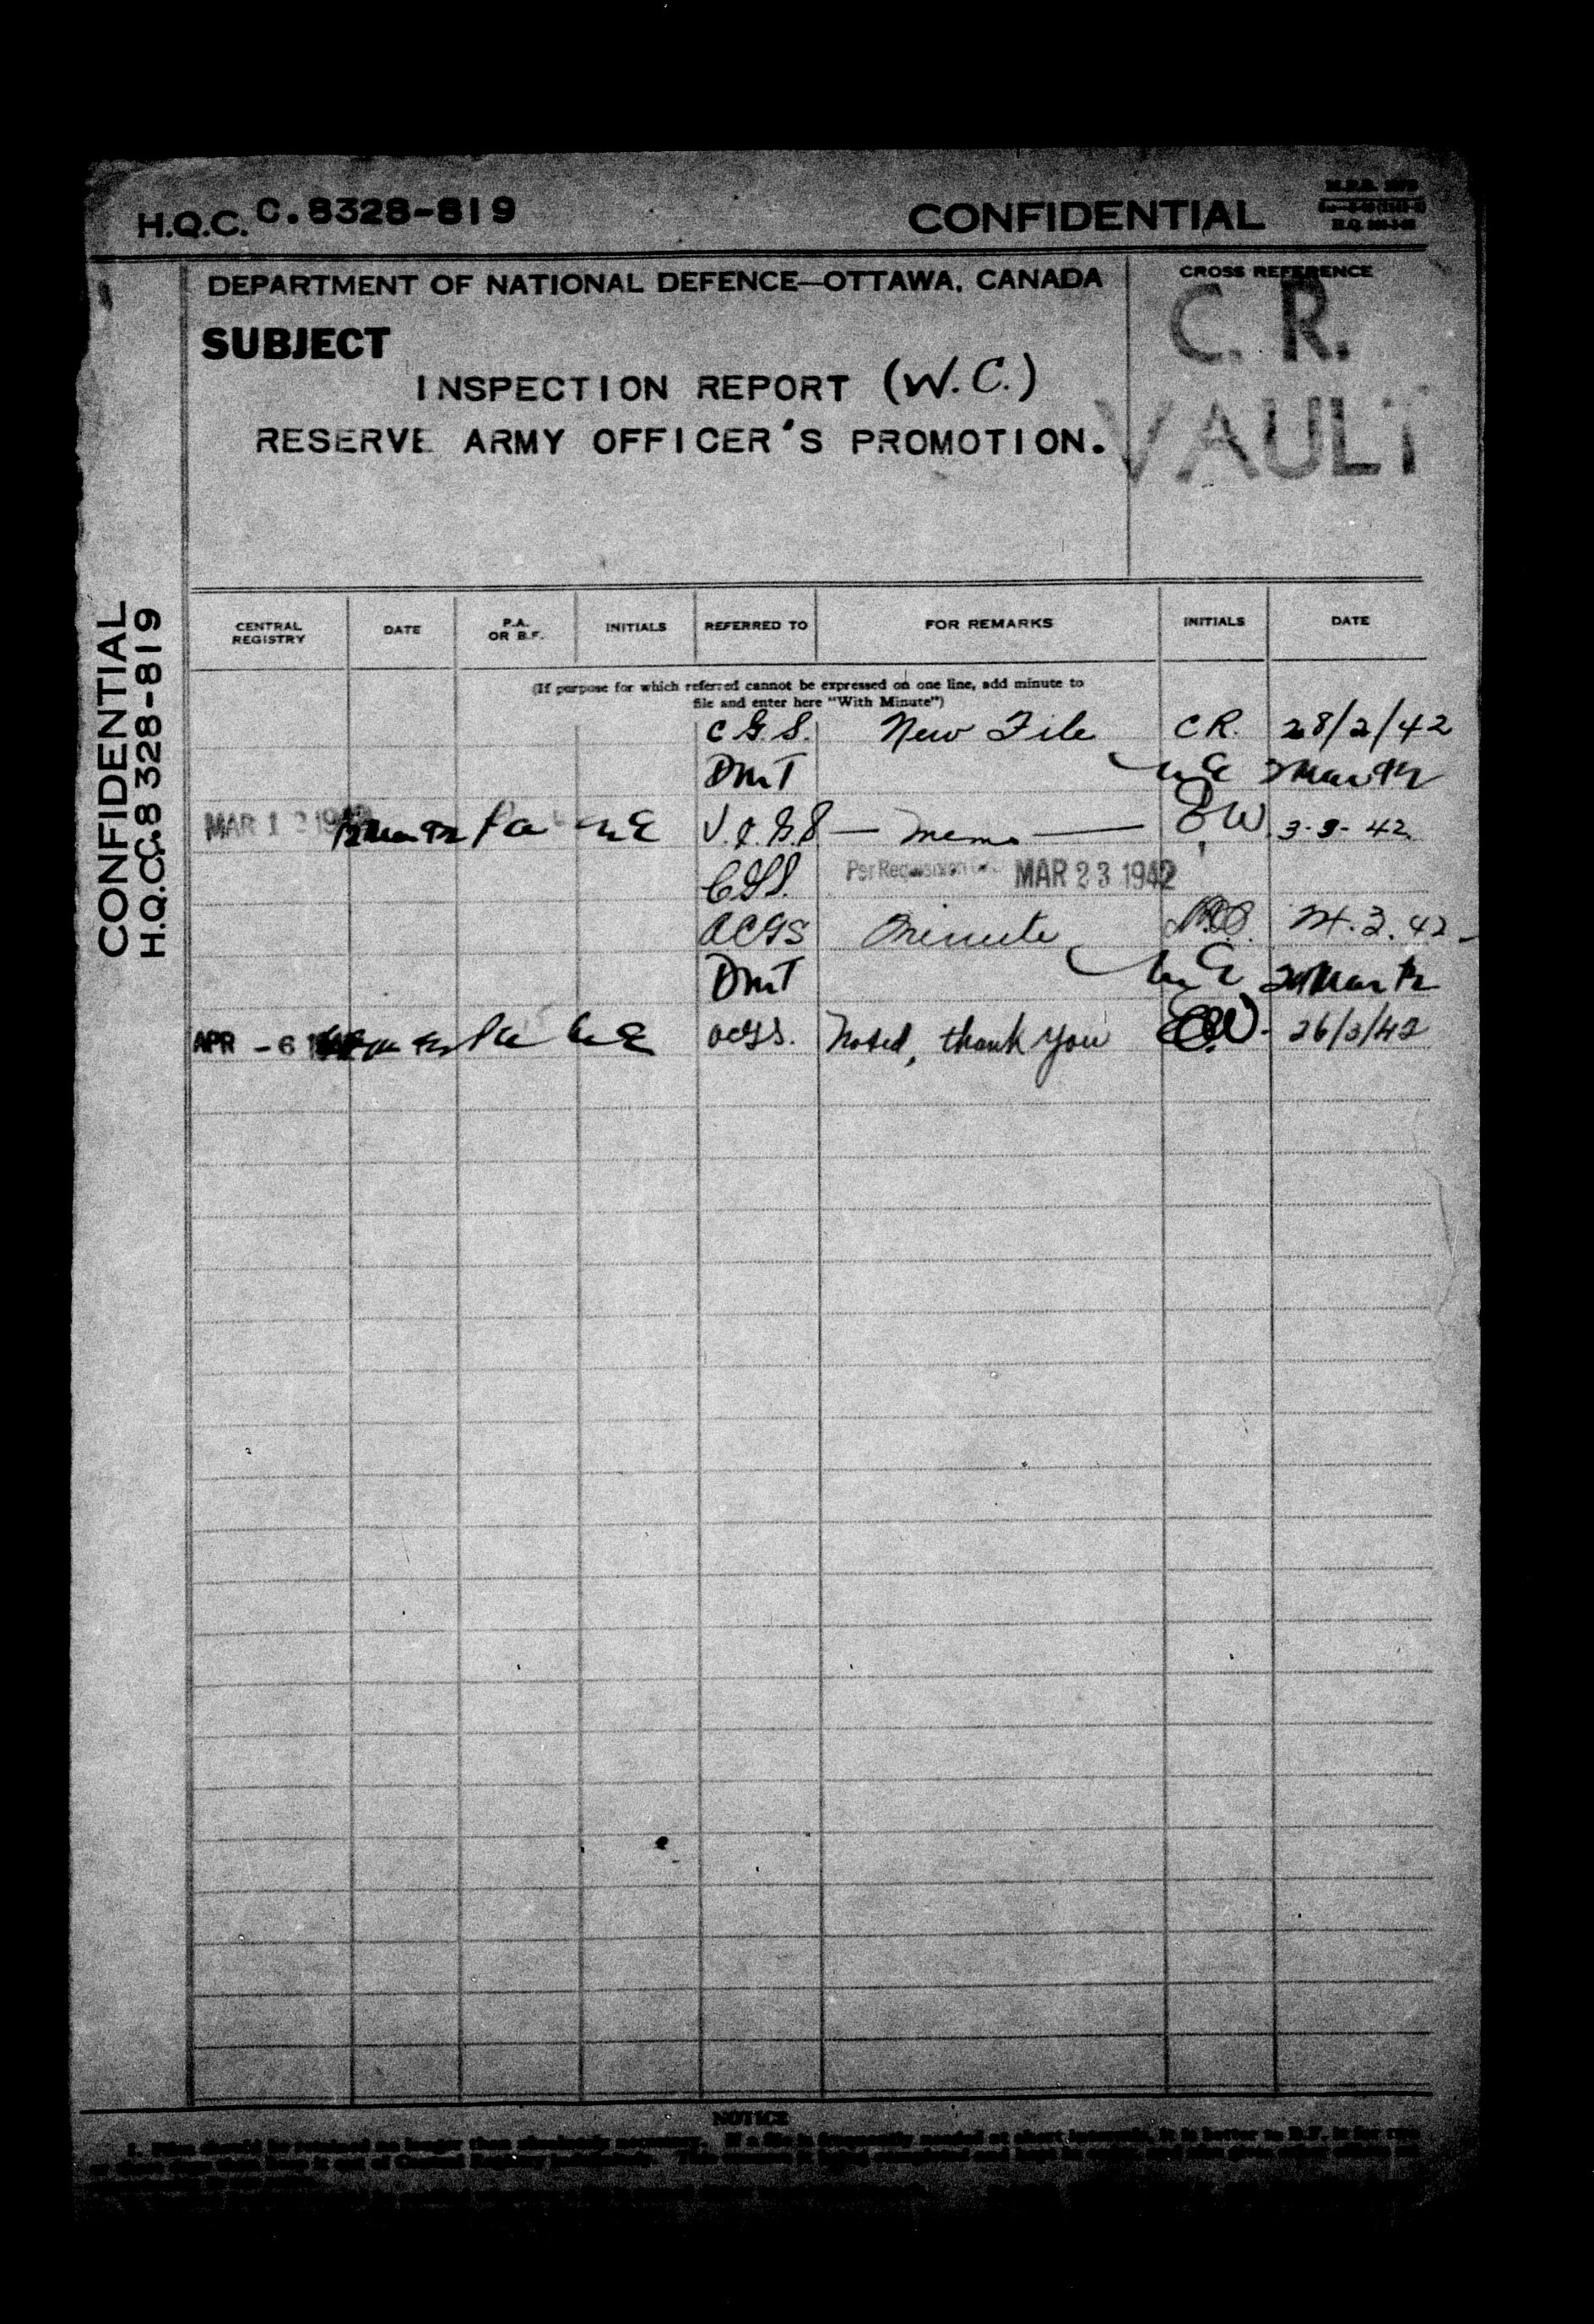 H.Q.C. C.8328-819
CONFIDENTIAL
DEPARTMENT OF NATIONAL DEFENCE—OTTAWA, CANADA
CROSS REFERENCE
C. R.
VAULT
SUBJECT
INSPECTION REPORT (W.C.)
RESERVE ARMY OFFICER'S PROMOTION.
CONFIDENTIAL
H.Q.C. C.8328-819
CENTRAL REGISTRY DATE P.A. OR B.F. INITIALS REFERRED TO FOR REMARKS INITIALS DATE
(If purpose for which referred cannot be expressed on one line, add minute to
file and enter here "With Minute")
C.G.S. New File C.R. 28/2/42
DMT
MAR 12 1942 Pa V.C.G.S — memo — 3-3-42
CGS. Per Requisition MAR 23 1942
ACGS Minute
DMT
APR -6 Pa ACGS. Noted, thank you 26/3/42
NOTICE